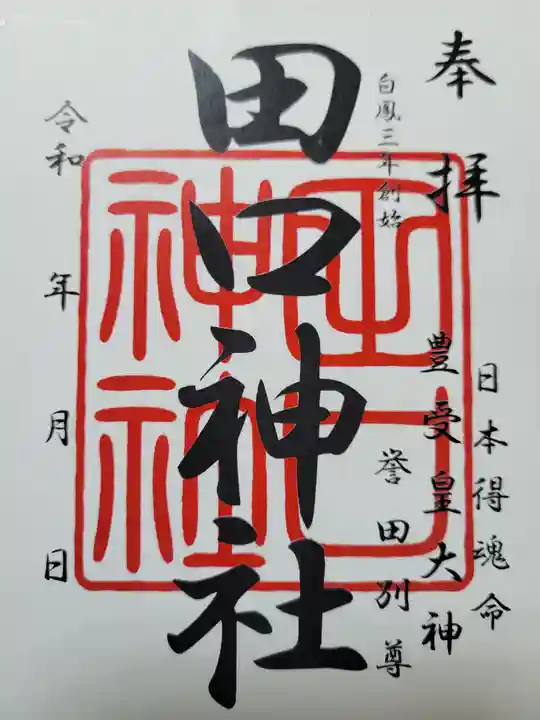 奉拝
日本得魂命
豊受皇大神
誉田別尊
白鳳三年創始
田口神社
令和 年 月 日
田口
神社